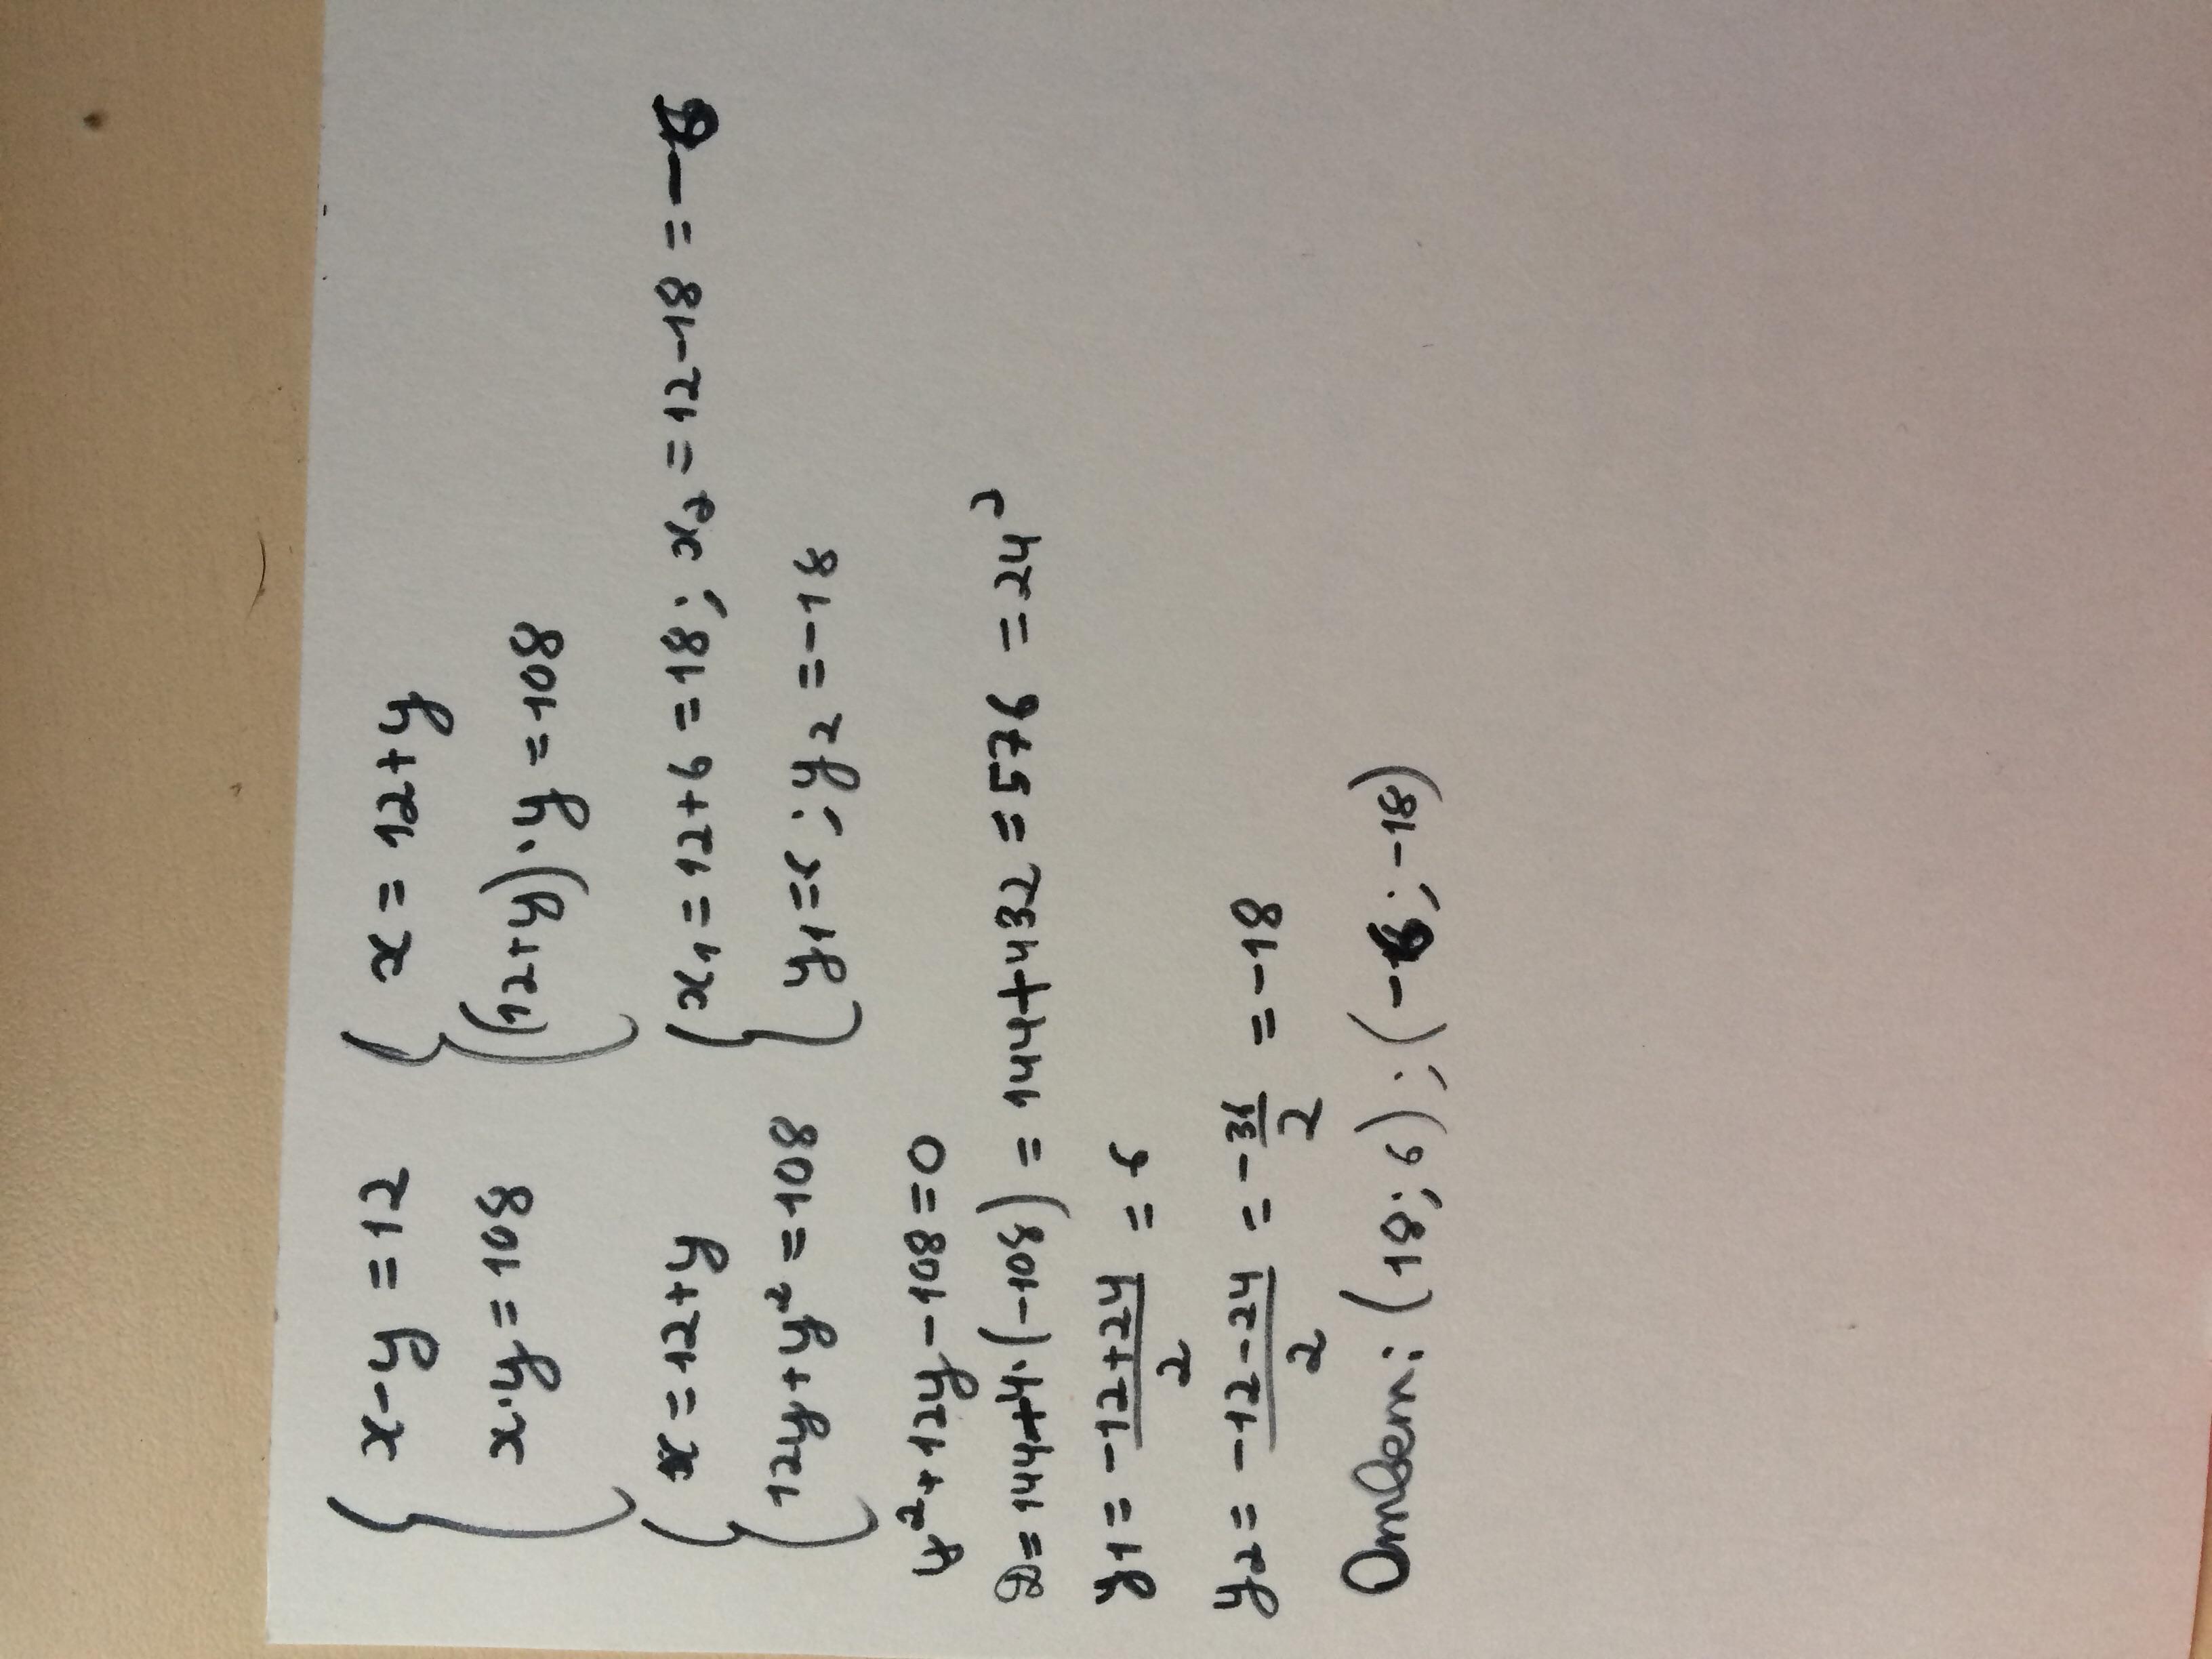 { x-y=12 { x=12+y
x·y=108 (12+y)·y=108
{ x=12+y { x₁=12+6=18; x₂=12-18=-6
12y+y²=108 y₁=6; y₂=-18
y²+12y-108=0
D=144+4·(-108)=144+432=576=24²
y₁=-12+24/2=6
y₂=-12-24/2=-36/2=-18
Ответ: (18;6);(-6;-18)